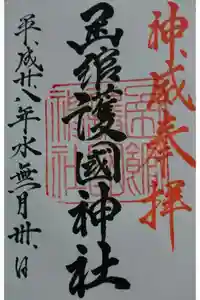 神威奉拝
函館護國神社
平成廿八年水無月卅日